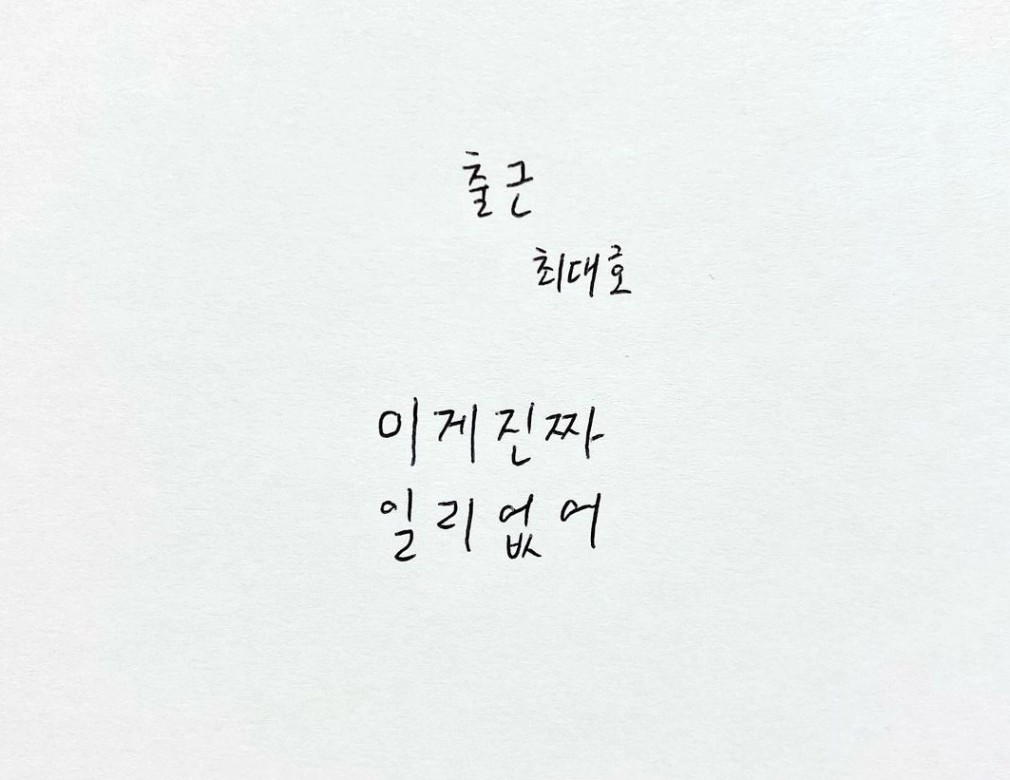 출근
최대호
이게진짜
일리없어